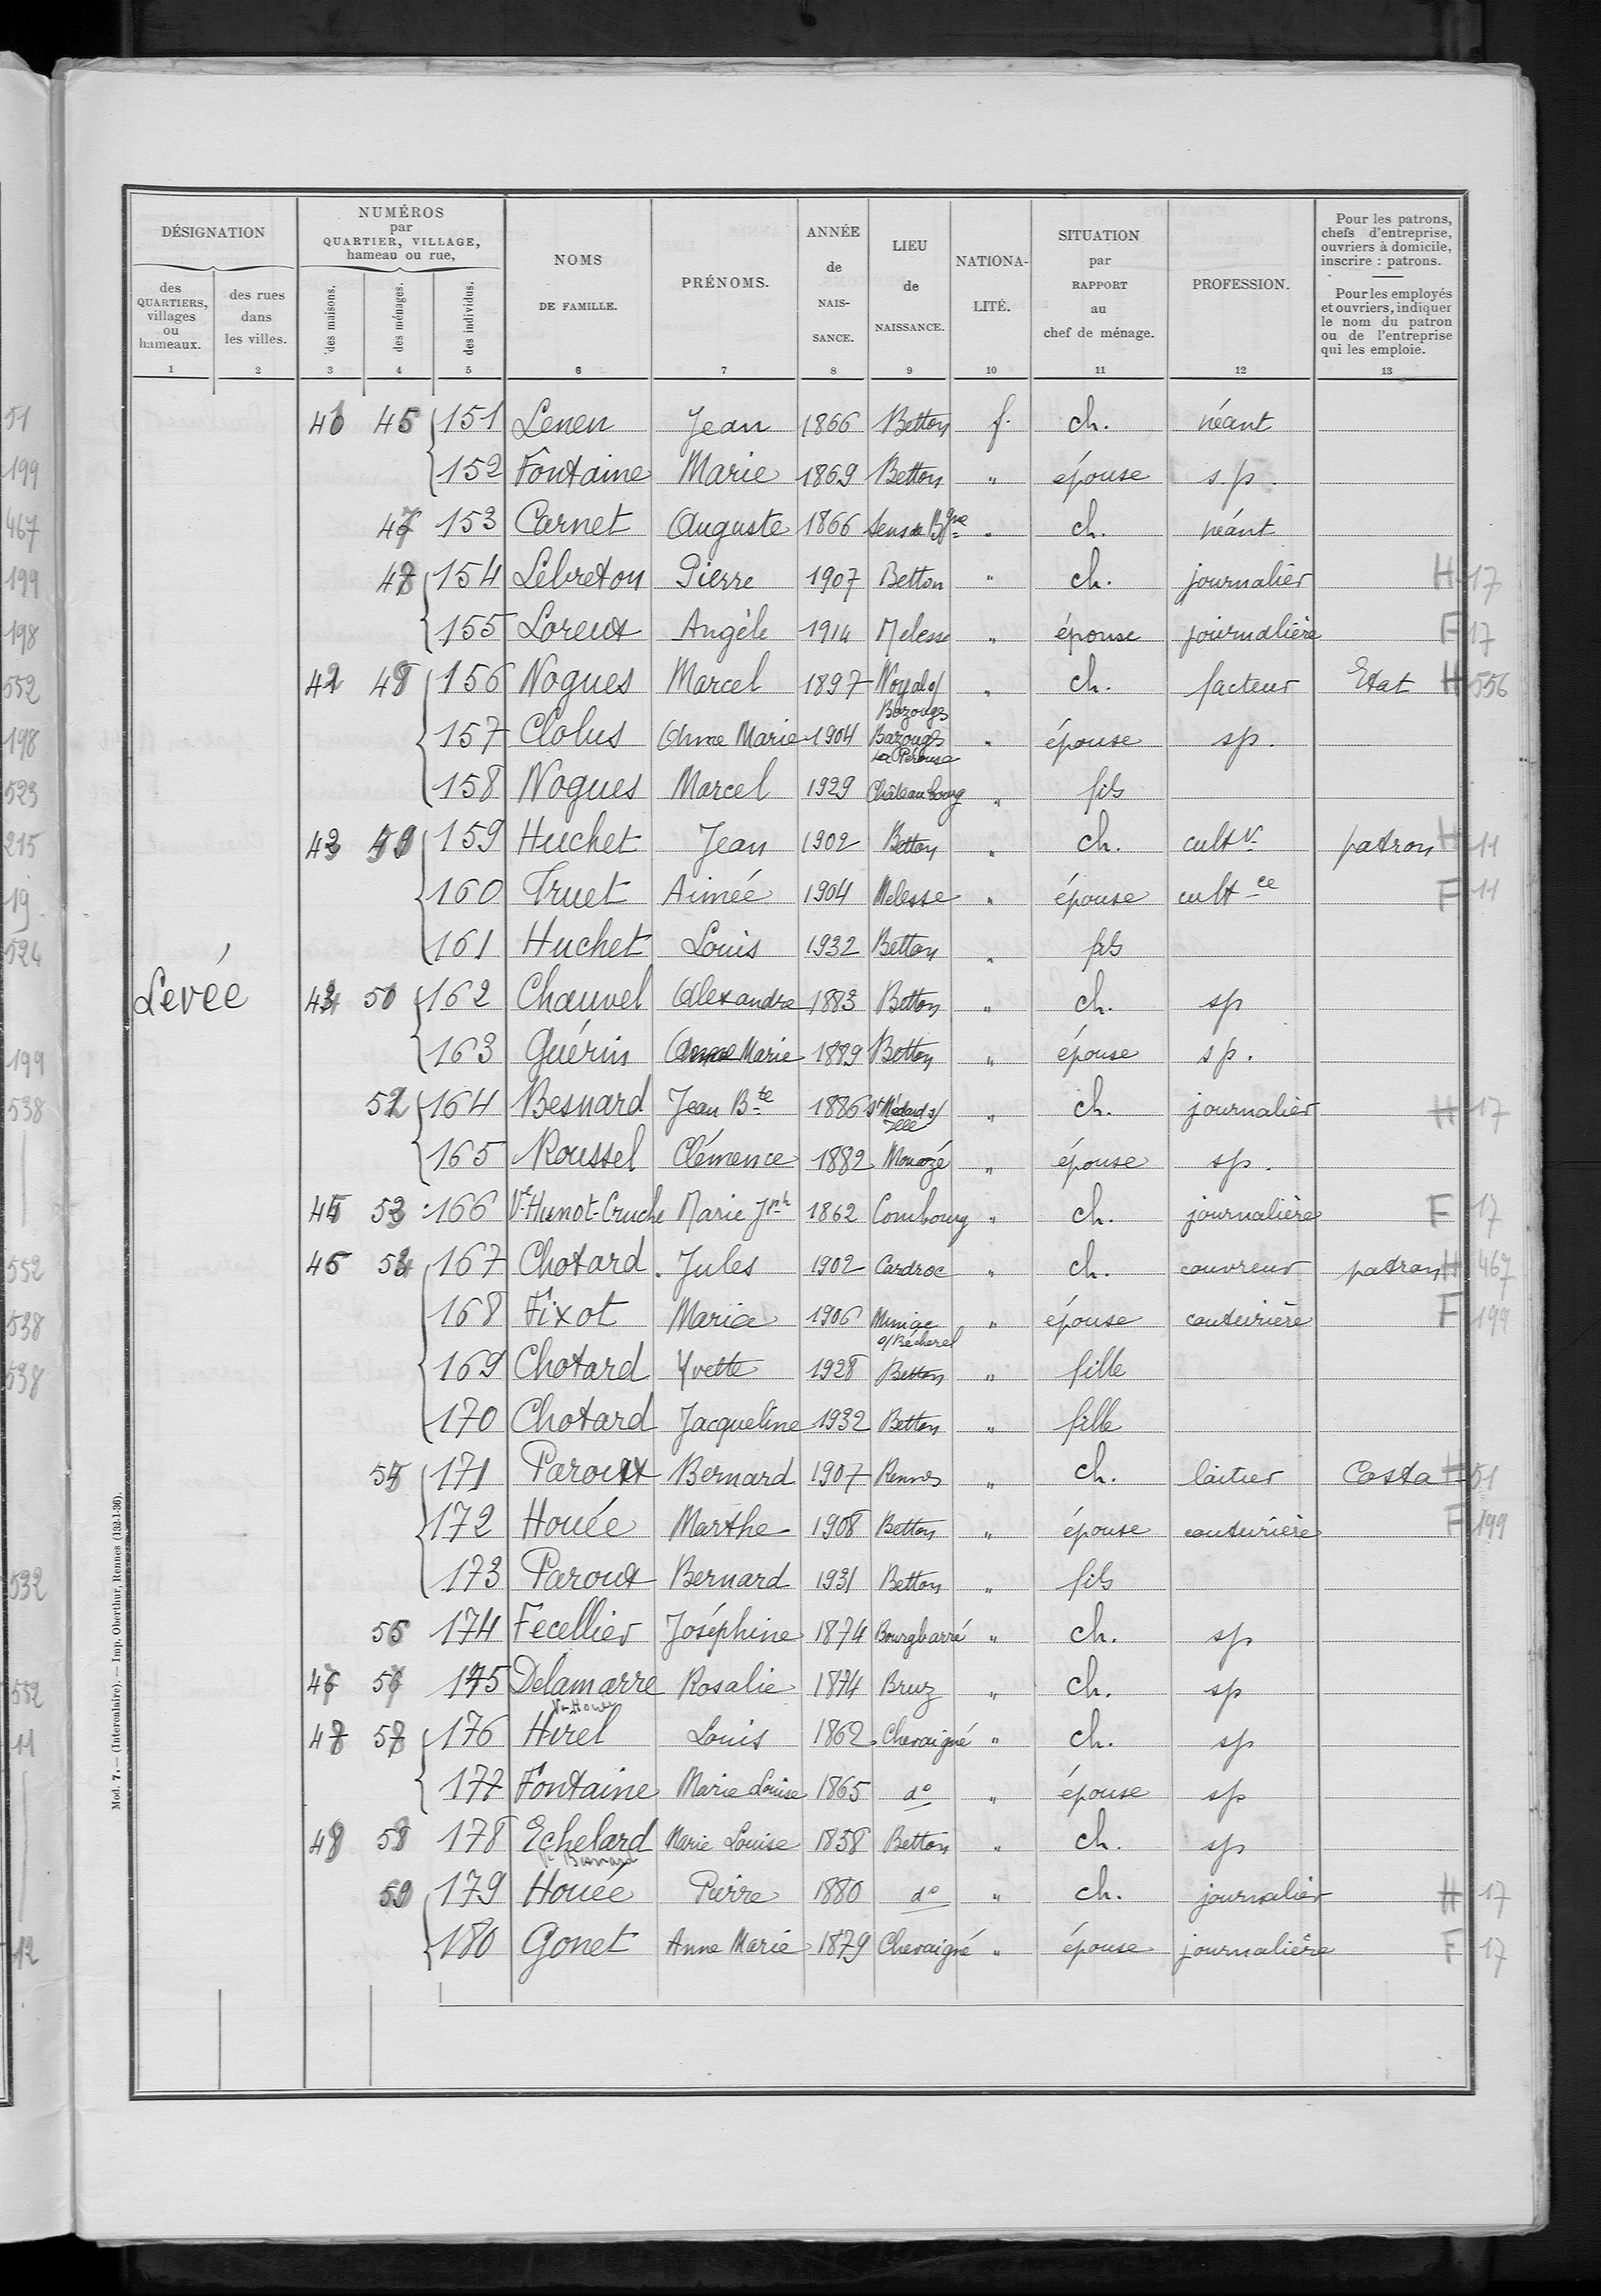 DÉSIGNATION
des QUARTIERS, villages ou hameaux.
des rues dans les villes.
NUMÉROS par QUARTIER, VILLAGE, hameau ou rue,
des maisons.
des ménages.
des individus.
NOMS DE FAMILLE.
PRÉNOMS.
ANNÉE de NAIS- SANCE.
LIEU de NAISSANCE.
NATIONA- LITÉ.
SITUATION par RAPPORT au chef de ménage.
PROFESSION.
Pour les patrons, chefs d'entreprise, ouvriers à domicile, inscrire : patrons.
Pour les employés et ouvriers, indiquer le nom du patron ou de l'entreprise qui les emploie.
1 2 3 4 5 6 7 8 9 10 11 12 13
151 Lenen Jean 1866 Betton f. ch. néant
152 Fontaine Marie 1869 Betton " épouse s.p.
153 Carnet Auguste 1866 Sens de Bgne " ch. néant
154 Lebreton Pierre 1907 Betton " ch. journalier H 17
155 Loreux Angèle 1914 Melesse " épouse journalière F 17
156 Nogues Marcel 1897 Noyal s/ Bazouges " ch. facteur Etat H 556
157 Clolus Anne Marie 1904 Bazouges la Pérouse " épouse sp.
158 Nogues Marcel 1929 Châteaubourg " fils
159 Huchet Jean 1902 Betton " ch. cultr patron H 11
160 Truet Aimée 1904 Melesse " épouse cultce F 11
161 Huchet Louis 1932 Betton " fils
Levée 162 Chauvel Alexandre 1883 Betton " ch. sp
163 Guérin Marie 1889 Betton " épouse sp.
52 164 Besnard Jean Bte 1886 St Médard s/ Ille " ch. journalier H 17
165 Roussel Clémence 1882 Mouazé " épouse sp.
166 Ve Hunot-Cruche Marie Jph 1862 Combourg " ch. journalière F 17
167 Chotard Jules 1902 Cardroc " ch. couvreur patron H 467
168 Fixot Maria 1906 Miniac s/ Bécherel " épouse couturière F 199
169 Chotard Yvette 1928 Betton " fille
170 Chotard Jacqueline 1932 Betton " fille
171 Paroux Bernard 1907 Rennes " ch. laitier Costa H 51
172 Houée Marthe 1908 Betton " épouse couturière F 199
173 Paroux Bernard 1931 Betton " fils
174 Fecellier Joséphine 1874 Bourgbarré " ch. sp
175 Delamarre Rosalie 1874 Bruz " ch. sp
176 Hirel Louis 1862 Chevaigné " ch. sp
177 Fontaine Marie Louise 1865 do " épouse sp
178 Echelard Marie Louise 1858 Betton " ch. sp
Ve Besnard
179 Houée Pierre 1880 do " ch. journalier H 17
180 Gonet Anne Marie 1879 Chevaigné " épouse journalière F 17
Mod. 7. — (Intercalaire). — Imp. Oberthur, Rennes (132-1-36).